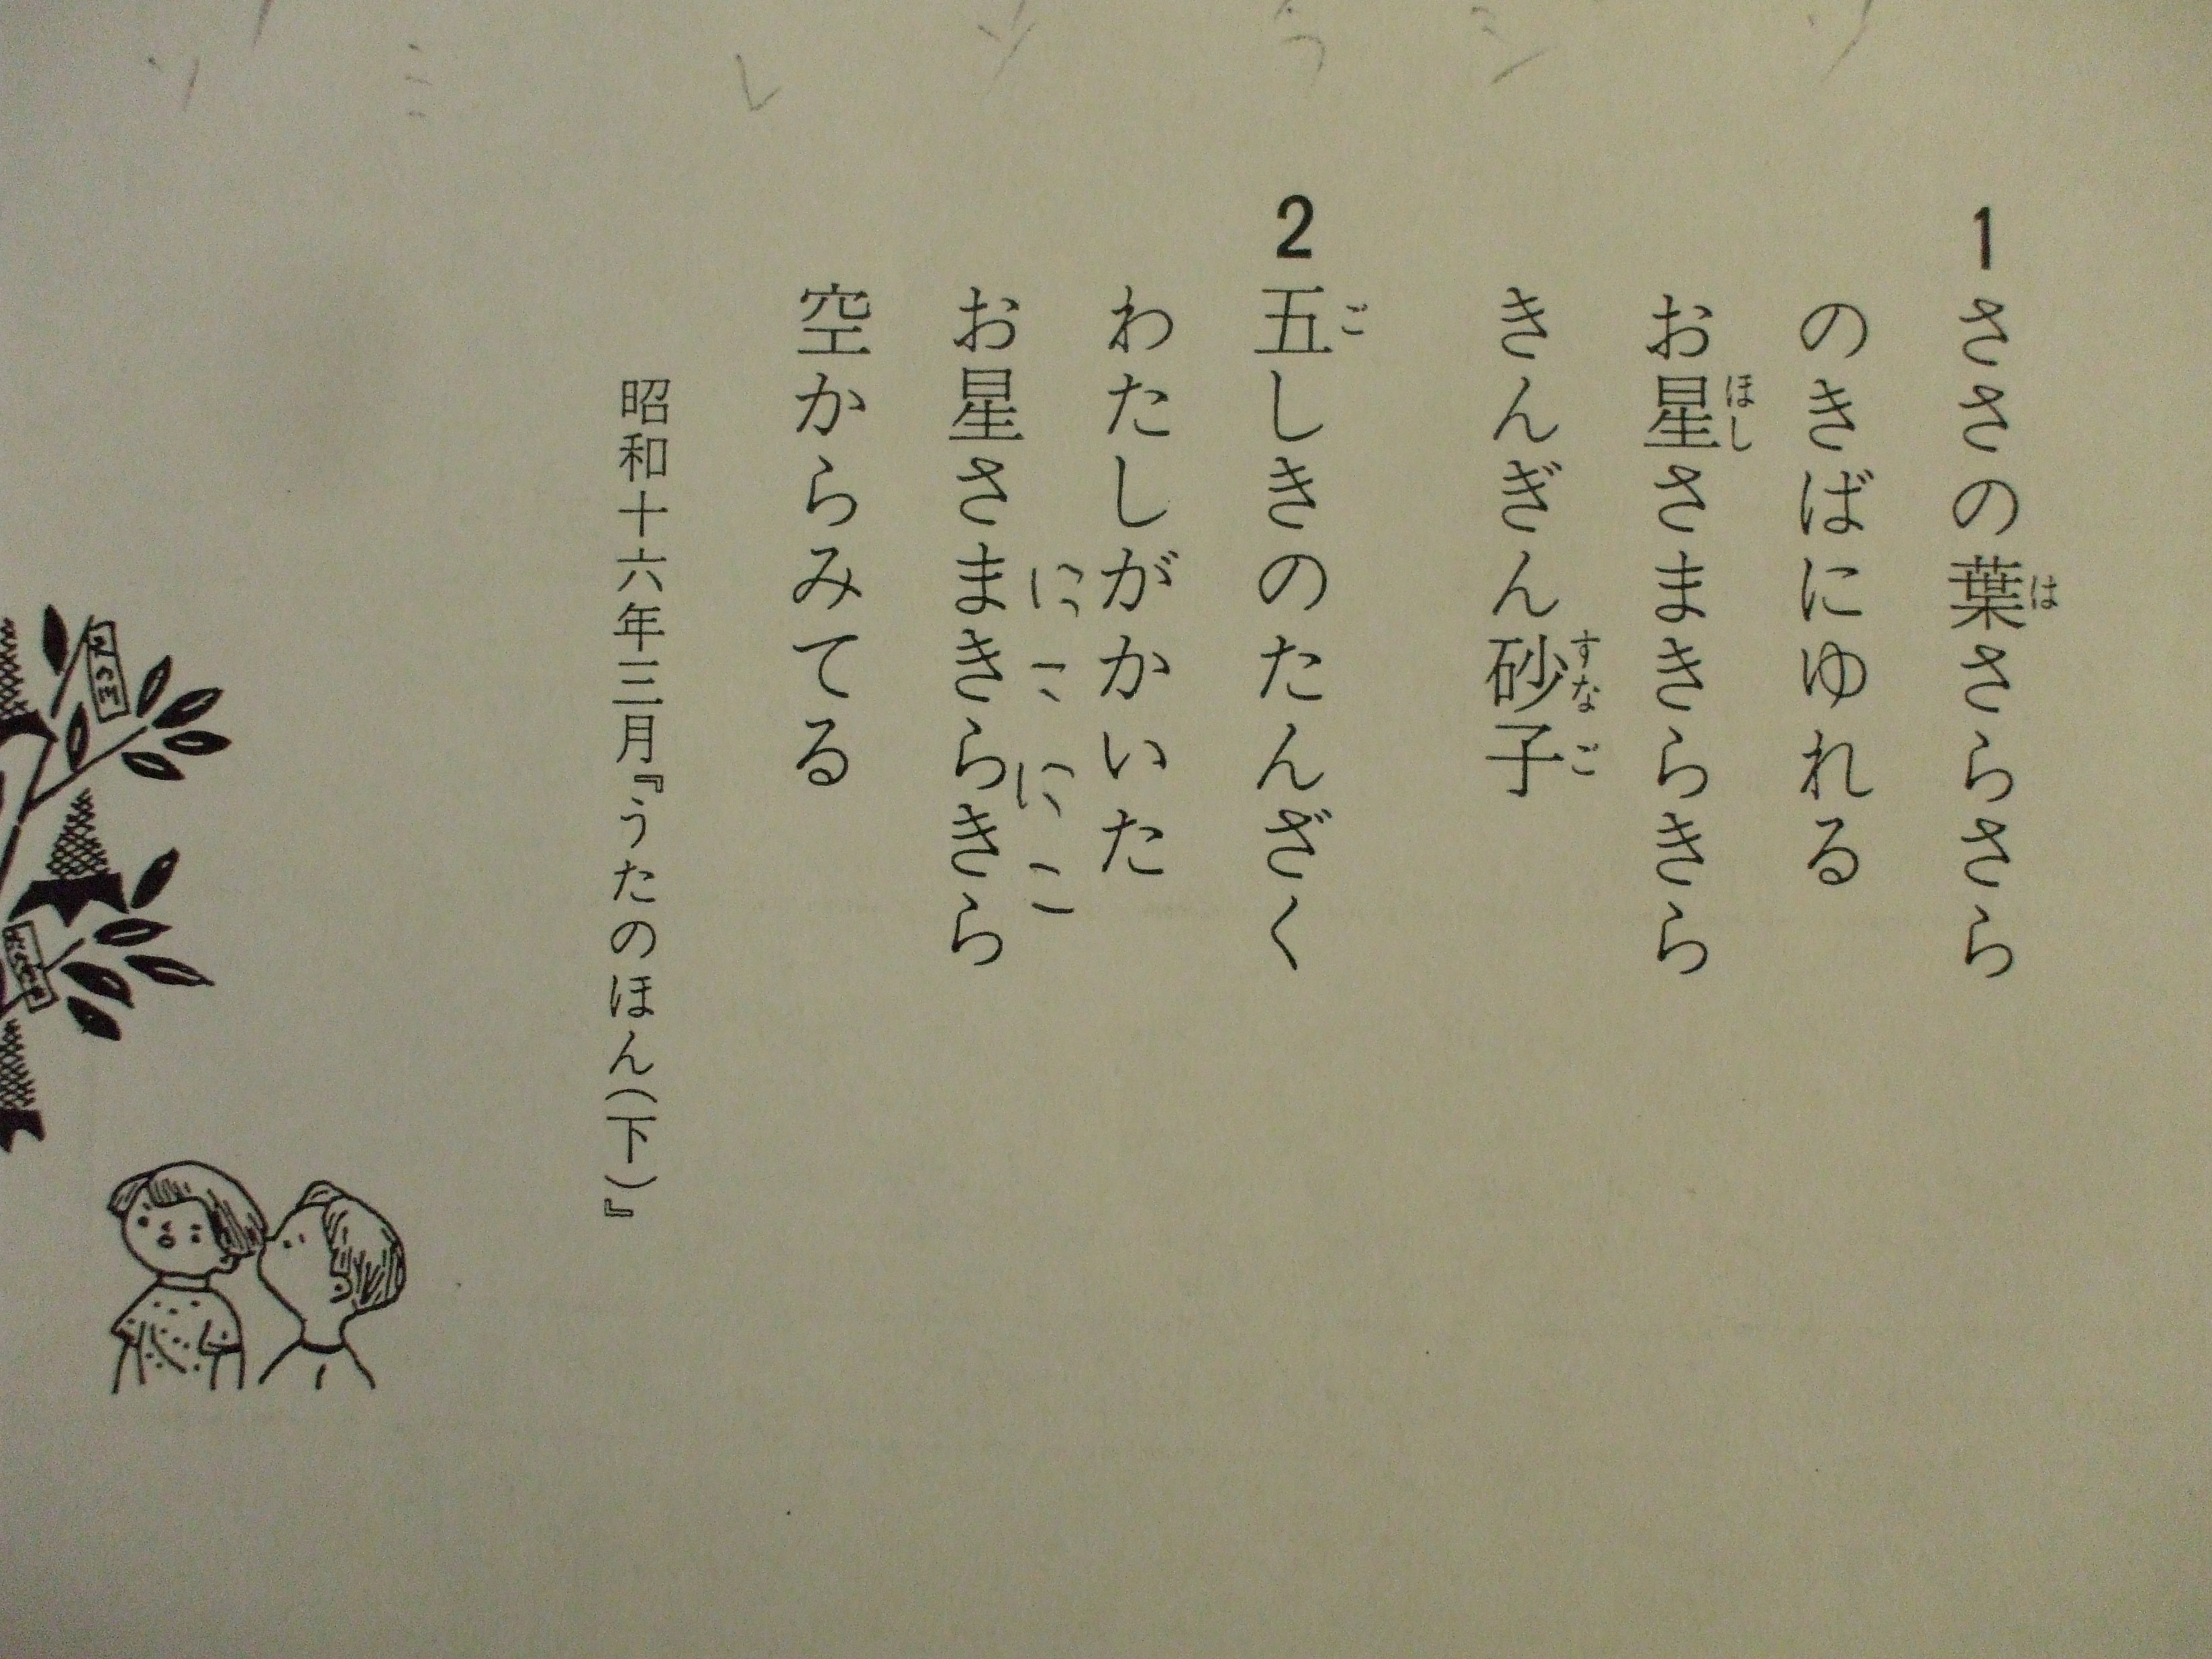 1 ささの葉さらさら
のきばにゆれる
お星さまきらきら
きんぎん砂子
2 五しきのたんざく
わたしがかいた
にこにこ
お星さまきらきら
空からみてる
昭和十六年三月『うたのほん(下)』